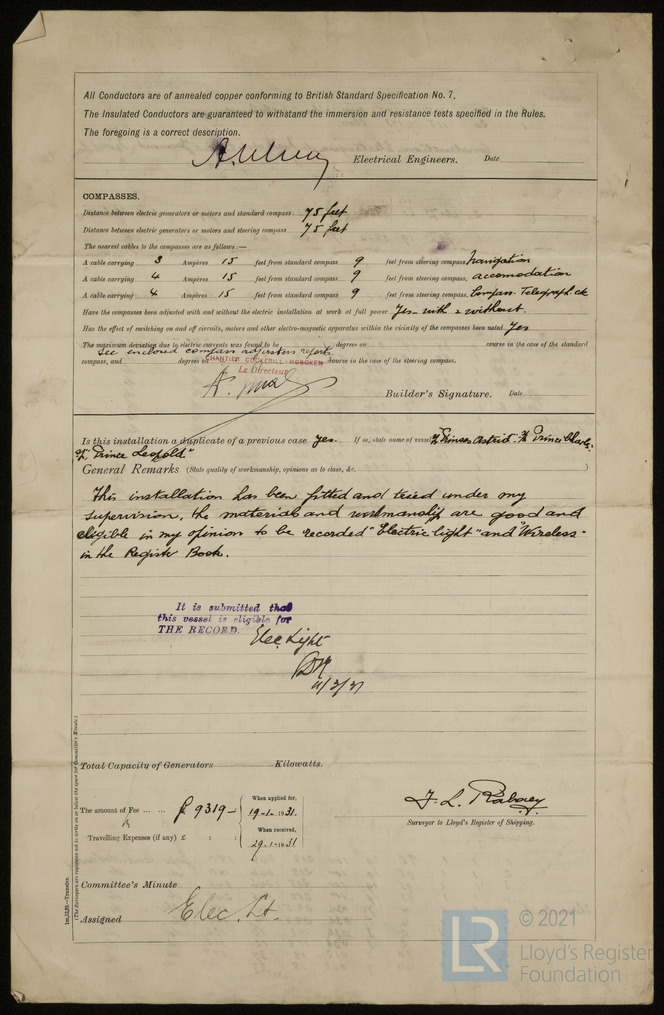 All Conductors are of annealed copper conforming to British Standard Specification No. 7,
The Insulated Conductors are guaranteed to withstand the immersion and resistance tests specified in the Rules.
The foregoing is a correct description.
Electrical Engineers. Date
COMPASSES.
Distance between electric generators or motors and standard compass 75 feet
Distance between electric generators or motors and steering compass 75 feet
The nearest cables to the compasses are as follows:—
A cable carrying 3 Ampères 15 feet from standard compass 9 feet from steering compass. Navigation
A cable carrying 4 Ampères 15 feet from standard compass 9 feet from steering compass. accomodation
A cable carrying 4 Ampères 15 feet from standard compass 9 feet from steering compass. Compass. Telegraph
Have the compasses been adjusted with and without the electric installation at work at full power Yes - with & without.
Has the effect of switching on and off circuits, motors and other electro-magnetic apparatus within the vicinity of the compasses been noted Yes
The maximum deviation due to electric currents was found to be degrees on course in the case of the standard
See enclosed compass adjusters reports
compass, and degrees on course in the case of the steering compass.
CHANTIER COCKERILL-HOBOKEN
Le Directeur
Builder's Signature. Date
Is this installation a duplicate of a previous case yes. If so, state name of vessel Princes Astrid Prince Charles,
Prince Leopold"
General Remarks (State quality of workmanship, opinions as to class, &c. )
This installation has been fitted and tried under my
supervision, the materials and workmanship are good and
eligible in my opinion to be recorded "Electric light" and "Wireless"
in the Register Book.
It is submitted that
this vessel is eligible for
THE RECORD. Elec. Light
11/3/31
Total Capacity of Generators Kilowatts.
The amount of Fee ... ... 9319- When applied for, 19-1-1931.
Travelling Expenses (if any) £ : : When received, 29-1-1931
Surveyor to Lloyd's Register of Shipping.
Committee's Minute
Assigned Elec. Lt.
1m,12,28.—Transfer.
(The Surveyors are requested not to write on or below the space for Committee's Minute.)
LR © 2021
Lloyd's Register
Foundation